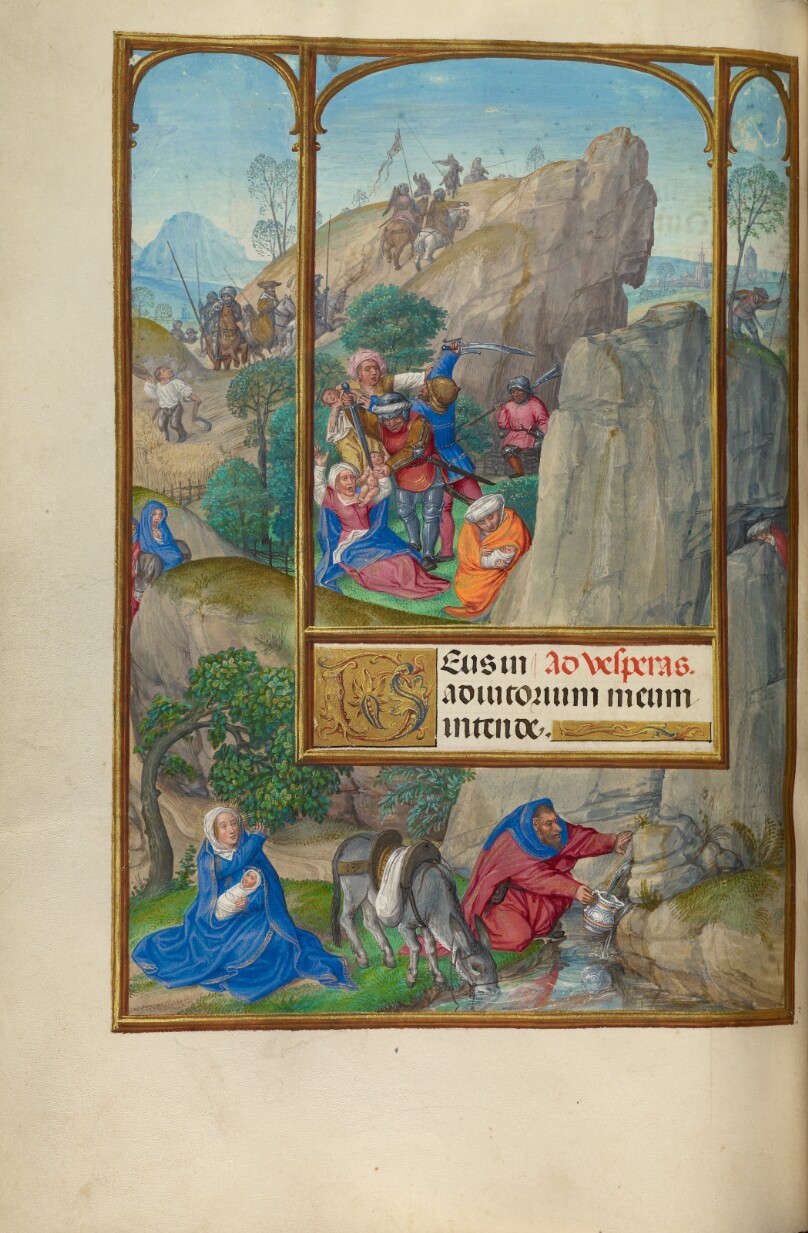 DEus in Ad vesperas.
adiutorium meum
intende.